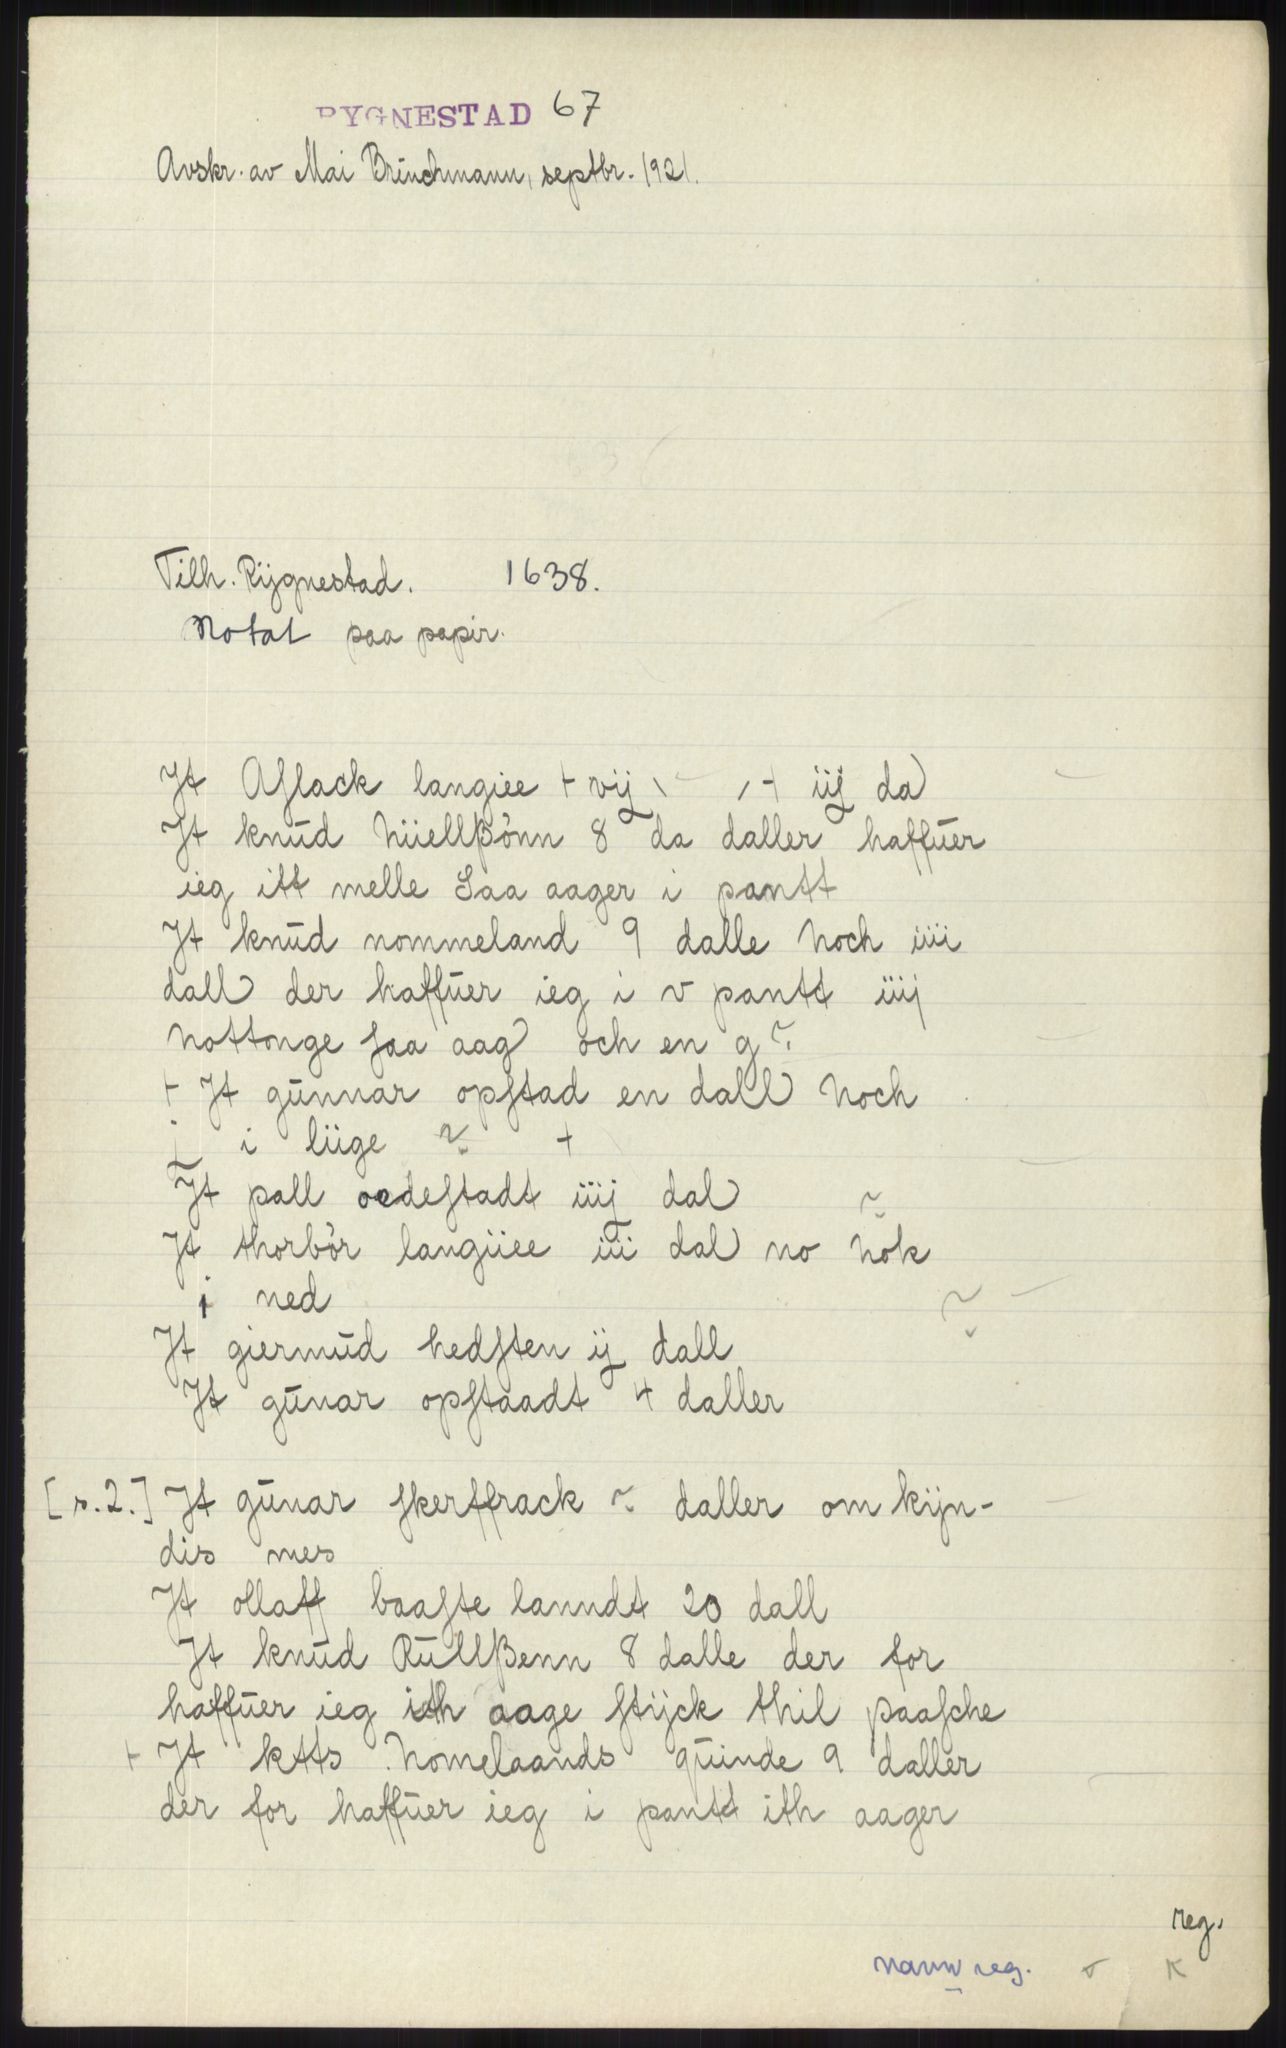 RYGNESTAD 67
Avskr. av Mai Brünchmann, septbr. 1921.
Tilh. Rÿgnestad. 1638.
Notat paa papir.
It Aſlack langiee + vij \ /+ iij da
It knŭd hüellßönn 8 da daller haffŭer
ieg itt melle Saa aager i pantt
It knŭd nommeland 9 dalle noch iiii
dall der haffŭer ieg i v pantt iiij
nottonge ſaa aag och en g ?
+ It gŭnnar opſtad en dall noch
j i liige ? +
It pall oedeſtadt iiij dal ?
It thorbör langiiee iii dal no nok
i ned ?
It giermŭd hedſten ij dall
It gŭnar opſtaadt 4 daller
[s. 2.] It gŭnar ſkerffrack ? daller om kijn-
dis mes
It ollaff baaſte lanndt 20 dall
It knŭd Rŭllßenn 8 dalle der for
haffŭer ieg ith aage ſtÿck thil paaſche
+ It ktts nomelaands qŭinde 9 daller
der for haffŭer ieg i pantt ith aager
reg.
navnreg. K